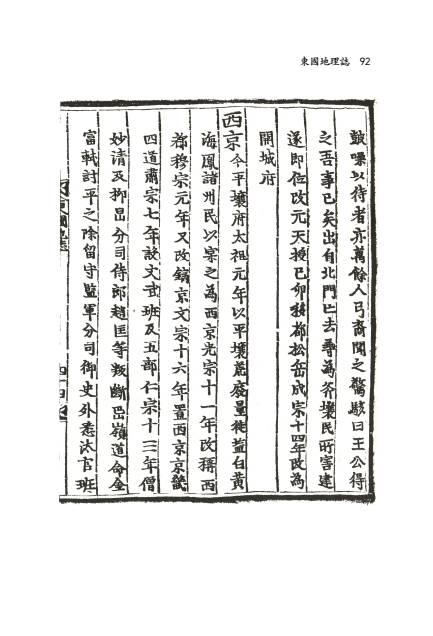 東國地理誌 92
鼓噪以待者亦萬餘人弓裔聞之驚駭曰王公得
之吾事已矣出自北門亡去尋為斧壤民所害建
遂即位改元天授己卯移都松岳成宗十四年改為
開城府
西京今平壤府太祖元年以平壤荒廢量徙益白黃
海鳳諸州民以宲之為西京光宗十一年改稱西
都穆宗元年又改鎬京文宗十六年置西京京畿
四道肅宗七年設文武班及五部仁宗十三年僧
妙清及柳旵分司侍郎趙匡等叛斷岊嶺道命金
富軾討平之除留守監軍分司御史外悉汰官班